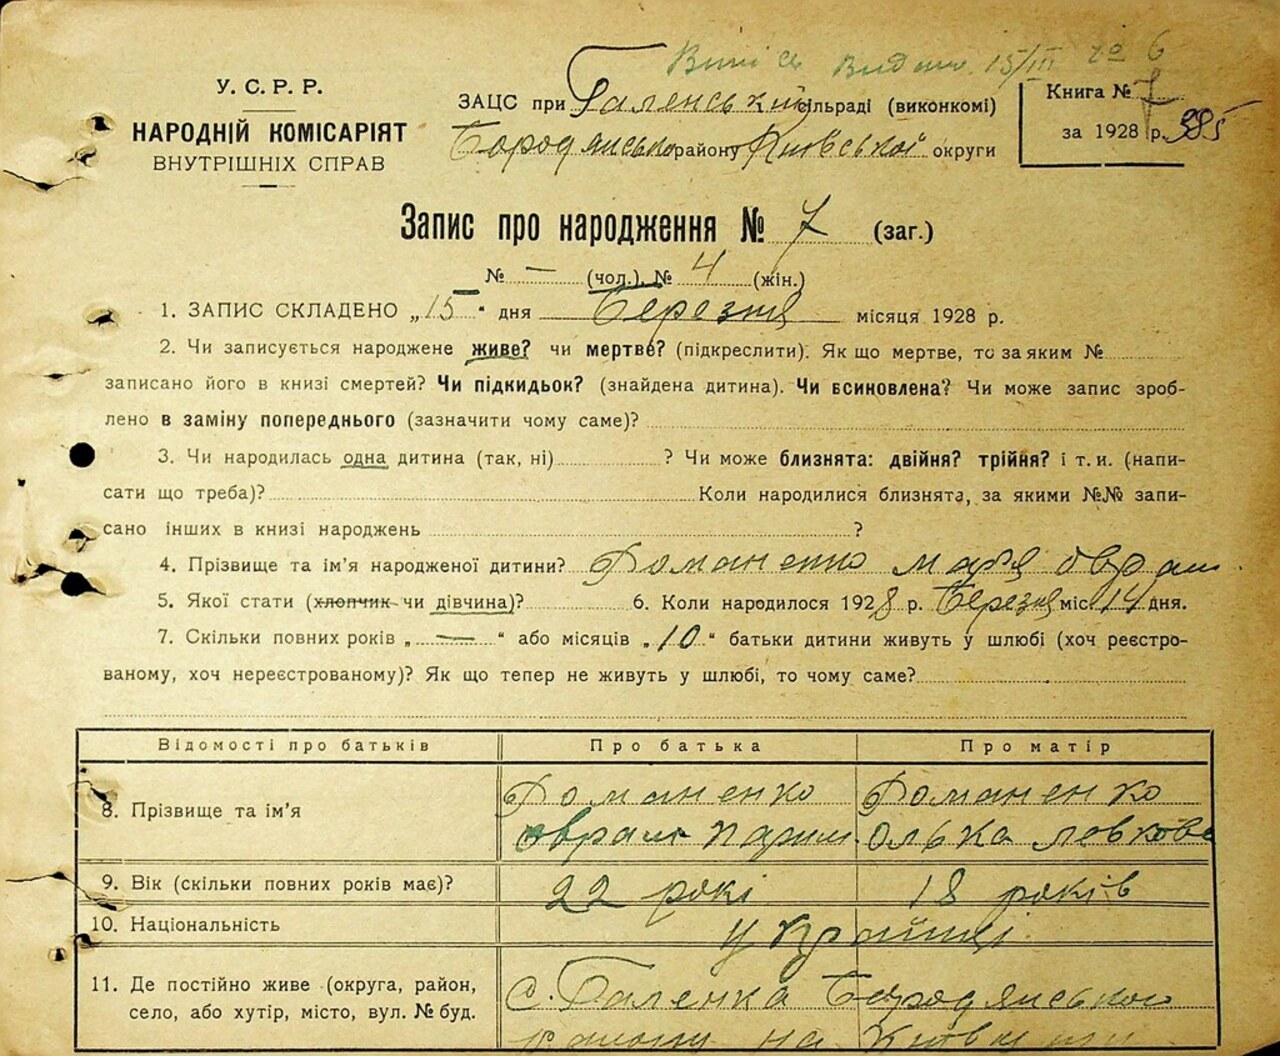 Випись Видана 15/III № 6
У. С. Р. Р.
НАРОДНІЙ КОМІСАРІЯТ
ВНУТРІШНІХ СПРАВ
ЗАЦС при Галенській сільраді (виконкомі)
Бородянсько району Київської округи
Книга № 7
за 1928 р. 385
Запис про народження № 7 (заг.)
№ — (чол.), № 4 (жін.)
1. ЗАПИС СКЛАДЕНО „15“ дня Березня місяця 1928 р.
2. Чи записується народжене живе? чи мертве? (підкреслити). Як що мертве, то за яким №
записано його в книзі смертей? Чи підкидьок? (знайдена дитина). Чи всиновлена? Чи може запис зроб-
лено в заміну попереднього (зазначити чому саме)?
3. Чи народилась одна дитина (так, ні) ? Чи може близнята: двійня? трійня? і т. и. (напи-
сати що треба)? Коли народилися близнята, за якими №№ запи-
сано інших в книзі народжень ?
4. Прізвище та ім’я народженої дитини? Романенко Мар’я Оврам.
5. Якої стати (хлопчик чи дівчина)? 6. Коли народилося 1928 р. Березня міс. 14 дня.
7. Скільки повних років „—“ або місяців „10“ батьки дитини живуть у шлюбі (хоч реєстро-
ваному, хоч нереєстрованому)? Як що тепер не живуть у шлюбі, то чому саме?
Відомості про батьків Про батька Про матір
8. Прізвище та ім’я
Романенко Романенко
Оврам Олька Левкова
9. Вік (скільки повних років має)? 22 рокі 18 років
10. Національність Українці
11. Де постійно живе (округа, район,
село, або хутір, місто, вул. № буд.
с. Галенка Бородянського
району на